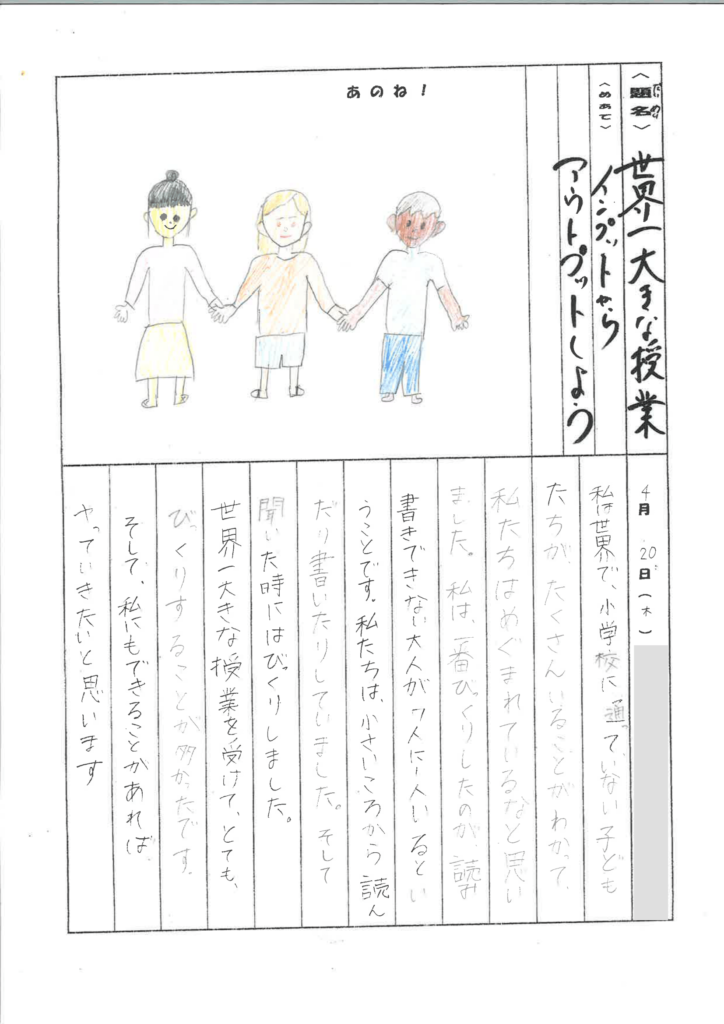 〈題名〉世界一大きな授業
〈めあて〉インプットから
アウトプットしよう
あのね!
4月20日(木)
私は世界で、小学校に通っていない子ども
たちが、たくさんいることがわかって、
私たちはめぐまれているなと思い
ました。私は、一番びっくりしたのが、読み
書きできない大人が7人に1人いるとい
うことです。私たちは、小さいころから読ん
だり書いたりしていました。そして
聞いた時にはびっくりしました。
世界一大きな授業を受けて、とても、
びっくりすることが多かったです。
そして、私にもできることがあれば、
やっていきたいと思います